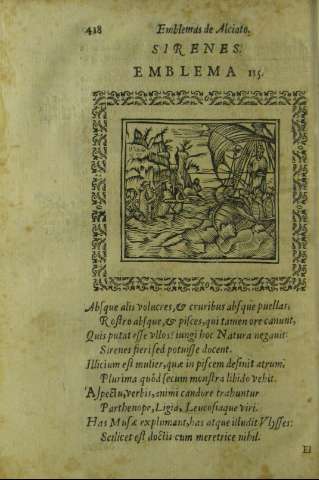 438 Emblemas de Alciato.
SIRENES.
EMBLEMA 115.
Abſque alis volucres, & cruribus abſque puellas,
Roſtro abſque, & piſces, qui tamen ore canunt,
Quis putat eſſe vllos? iungi hoc Natura negauit:
Sirenes fieri ſed potuiſſe docent.
Illicium eſt mulier, quæ in piſcem deſinit atrum,
Plurima quòd ſecum monſtra libido vehit.
Aſpectu, verbis, animi candore trahuntur
Parthenope, Ligia, Leucoſiaque viri.
Has Muſæ explumant, has atque illudit Vlyſſes:
Scilicet eſt doctis cum meretrice nihil.
El